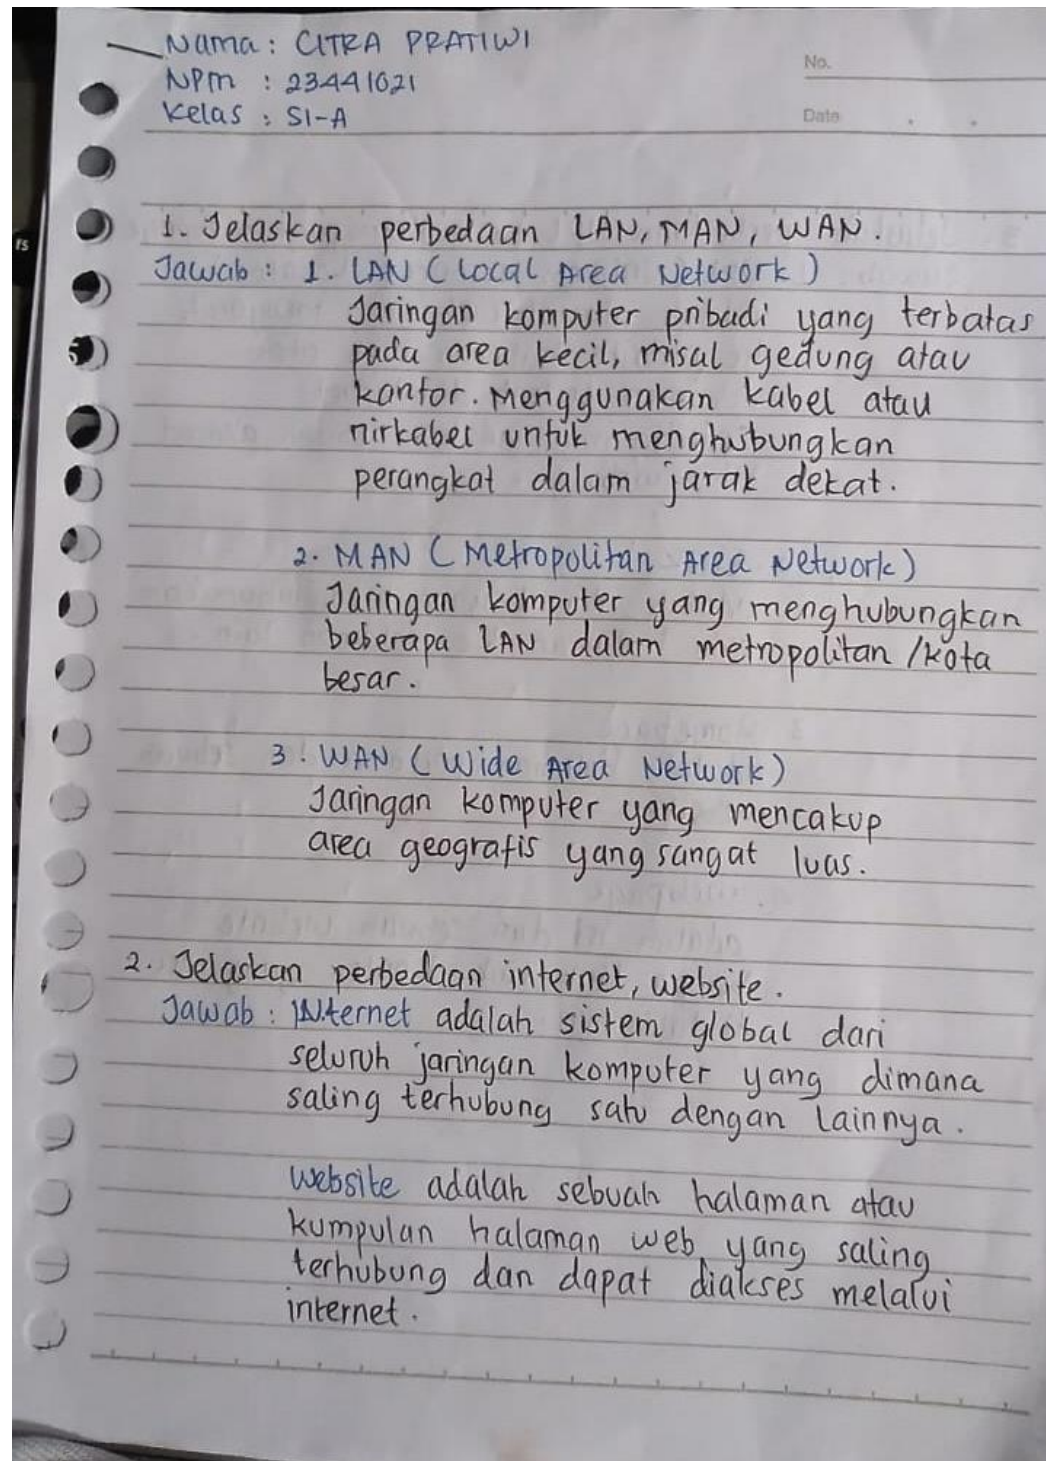 Nama : CITRA PRATIWI
NPM : 23441021
Kelas : SI-A
No.
Date
1. Jelaskan perbedaan LAN, MAN, WAN.
Jawab : 1. LAN ( Local Area Network )
Jaringan komputer pribadi yang terbatas
pada area kecil, misal gedung atau
kantor. Menggunakan kabel atau
nirkabel untuk menghubungkan
perangkat dalam jarak dekat.
2. MAN ( Metropolitan Area Network )
Jaringan komputer yang menghubungkan
beberapa LAN dalam metropolitan /kota
besar.
3. WAN ( Wide Area Network )
Jaringan komputer yang mencakup
area geografis yang sangat luas.
2. Jelaskan perbedaan internet, website.
Jawab : INternet adalah sistem global dari
seluruh jaringan komputer yang dimana
saling terhubung satu dengan lainnya.
Website adalah sebuah halaman atau
kumpulan halaman web yang saling
terhubung dan dapat diakses melalui
internet.